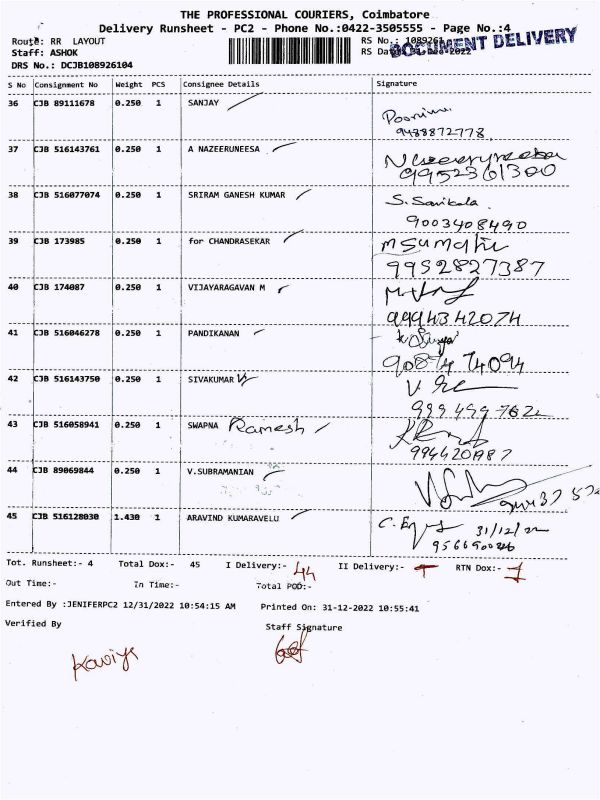 THE PROFESSIONAL COURIERS, Coimbatore
Delivery Runsheet - PC2 - Phone No.:0422-3505555 - Page No.:4
Route: RR LAYOUT
RS No.: 1089261
DOCUMENT DELIVERY
Staff: ASHOK
RS Da 2022
DRS No.: DCJB108926104
S No Consignment No Weight PCS Consignee Details Signature
36 CJB 89111678 0.250 1 SANJAY
9488872778
37 CJB 516143761 0.250 1 A NAZEERUNEESA
9952361300
38 CJB 516077074 0.250 1 SRIRAM GANESH KUMAR
9003408490
39 CJB 173985 0.250 1 for CHANDRASEKAR
M Sumathi
9952827387
40 CJB 174087 0.250 1 VIJAYARAGAVAN M
9994342074
41 CJB 516046278 0.250 1 PANDIKANAN
9087474094
42 CJB 516143750 0.250 1 SIVAKUMAR V
43 CJB 516058941 0.250 1 SWAPNA Ramesh
44 CJB 89069844 0.250 1 V.SUBRAMANIAN
45 CJB 516128030 1.430 1 ARAVIND KUMARAVELU
31/12/22
Tot. Runsheet:- 4 Total Dox:- 45 I Delivery:- 44 II Delivery:- RTN Dox:- 1
Out Time:- In Time:- Total POD:-
Entered By :JENIFERPC2 12/31/2022 10:54:15 AM Printed On: 31-12-2022 10:55:41
Verified By Staff Signature
Kaviya